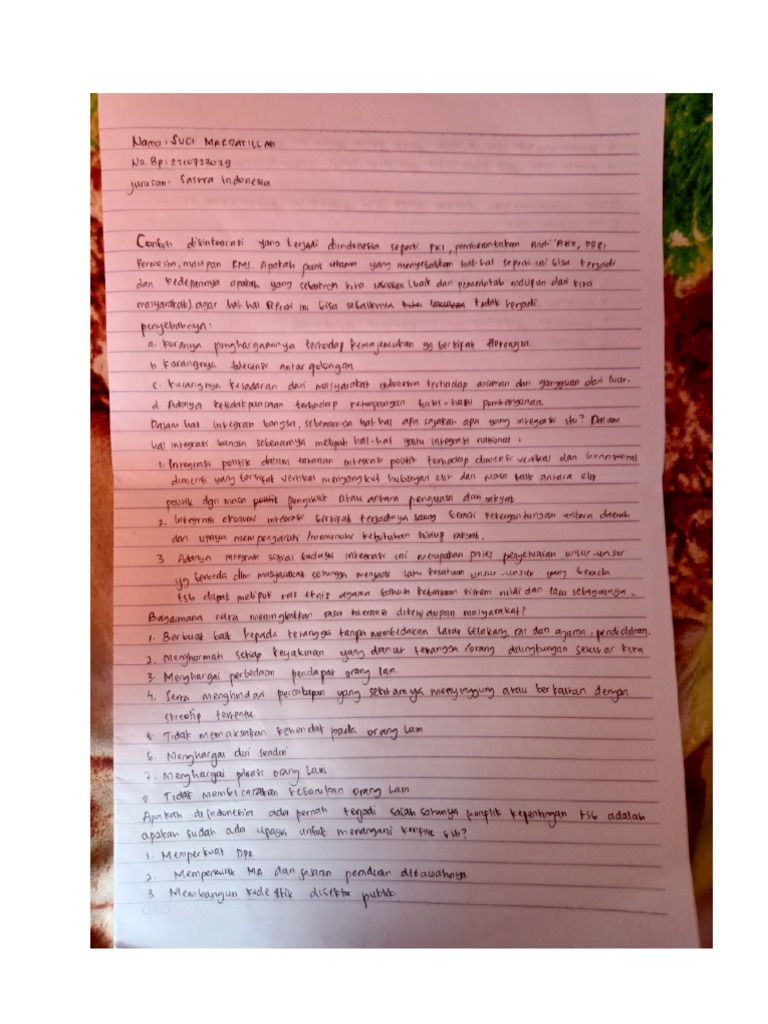 Nama : SUCI MARDATILLAH
No. Bp : 2210723029
Jurusan : Sastra Indonesia
Contoh disintegrasi yang terjadi diindonesia seperti PKI, pemberontakan Andi Aziz, PPRI
Permesta, maupun RMS. Apakah point utama yang menyebabkan hal-hal seperti ini bisa terjadi
dan kedepannya apakah yang sebaiknya kita lakukan (baik dari pemerintah maupun dari kita
masyarakat) agar hal-hal seperti ini bisa sebaiknya tidak terjadi.
penyebabnya :
a. Kuranya penghargaannya terhadap kemajemukan yg bersifat Heterogen.
b. Karangnya toleransi antar golongan
c. Kurangnya kesadaran dari masyarakat indonesia terhadap ancaman dan gangguan dari luar.
d. Adanya ketidakpuasaan terhadap ketimpangan hasil-hasil pembangunan.
Dalam hal integrasi bangsa, sebenarnya hal-hal apa sajakah apa yang integrasi itu? Dalam
hal integrasi bangsa sebenarnya meliputi hal-hal yaitu integrasi nasional :
1. Integrasi politik dalam tatanan integrasi politik terhadap dimensi vertikal dan horizontal
dimensi yang bersifat vertikal menyangkut hubungan elit dan masa baik antara elit
politik dgn masa pengikut atau antara penguasa dan rakyat
2. Integrasi ekonomi integrasi bersifat terjadinya saling ketergantungan antara daerah
dan upaya mempengaruhi/memenuhi kebutuhan hidup rakyat.
3. Adanya integrasi sosial budaya integrasi ini merupakan proses penyesuaian unsur-unsur
yg berbeda dlm masyarakat sehingga menjadi satu kesatuan unsur-unsur yang berada
tsb dapat meliputi ras etnis agama bahasa kebiasaan sistem nilai dan lain sebagainya.
Bagaimana cara meningkatkan rasa toleransi ditehidupan masyarakat?
1. Berbuat baik kepada tetangga tanpa membedakan latar belakang, ras dan agama, pendidikan.
2. Menghormati setiap keyakinan yang dianut tetangga/orang dilingkungan sekitar kita
3. Menghargai perbedaan pendapat orang lain.
4. Serta menghindari percakapan yang sekiranya menyinggung atau berkaitan dengan
streotip tertentu.
5. Tidak memaksakan kehendak pada orang lain
6. Menghargai diri sendiri
7. Menghargai privasi orang lain
8. Tidak membicarakan keburukan orang lain
Apakah di indonesia ada pernah terjadi salah satunya konflik kepentingan tsb adalah
apakah sudah ada upaya untuk menangani konflik tsb?
1. Memperkuat DPR
2. Memperkuat MA dan jajaran peradilan dibawahnya.
3. Membangun kode etik disektor publik.